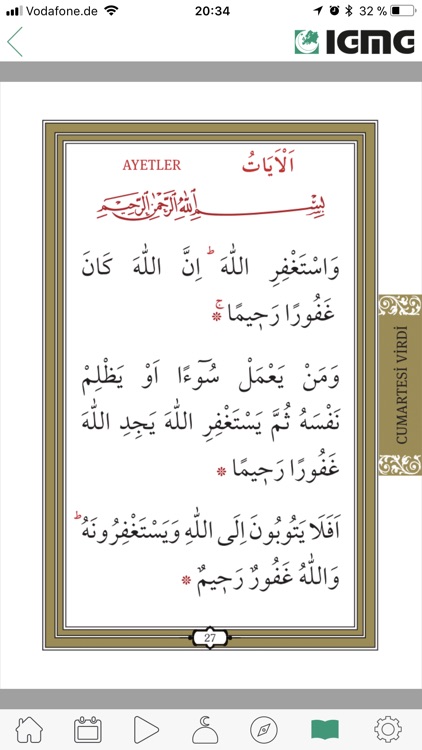 Vodafone.de 20:34 32 %
IGMG
AYETLER اَلْاٰيَاتُ
بِسْمِ اللّٰهِ الرَّحْمٰنِ الرَّحِيمِ
وَاسْتَغْفِرِ اللّٰهَ ۜ اِنَّ اللّٰهَ كَانَ
غَفُورًا رَحٖيمًا ۚ
وَمَنْ يَعْمَلْ سُٓوءًا اَوْ يَظْلِمْ
نَفْسَهُ ثُمَّ يَسْتَغْفِرِ اللّٰهَ يَجِدِ اللّٰهَ
غَفُورًا رَحٖيمًا
اَفَلَا يَتُوبُونَ اِلَى اللّٰهِ وَيَسْتَغْفِرُونَهُ ۜ
وَاللّٰهُ غَفُورٌ رَحٖيمٌ
CUMARTESİ VİRDİ
27